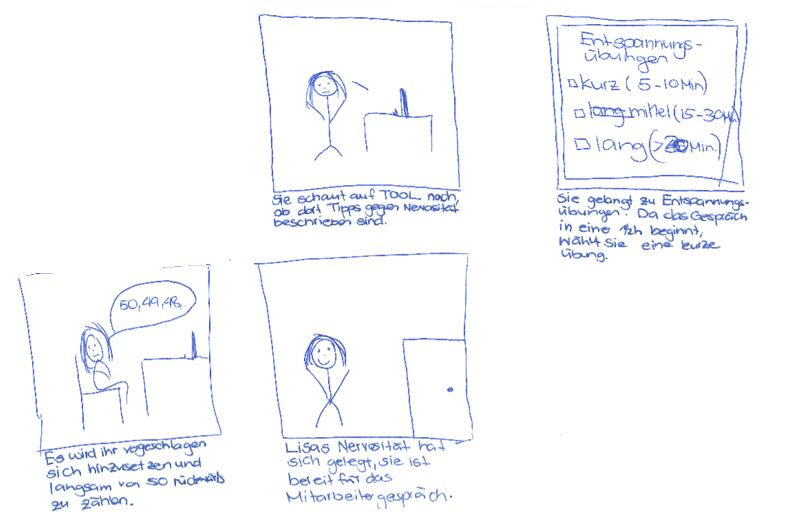 Sie schaut auf TOOL nach,
ob dort Tipps gegen Nervosität
beschrieben sind.
Entspannungs-
übungen
kurz (5-10 Min)
mittel (15-30 Min)
lang (> Min.)
Sie gelangt zu Entspannungs-
übungen. Da das Gespräch
in eine 1/2h beginnt,
wählt sie eine kurze
Übung.
50, 49, 48..
Es wird ihr vogeschlagen
sich hinzusetzen und
langsam von 50 rückwärts
zu zählen.
Lisas Nervosität hat
sich gelegt, sie ist
bereit für das
Mitarbeitergespräch.